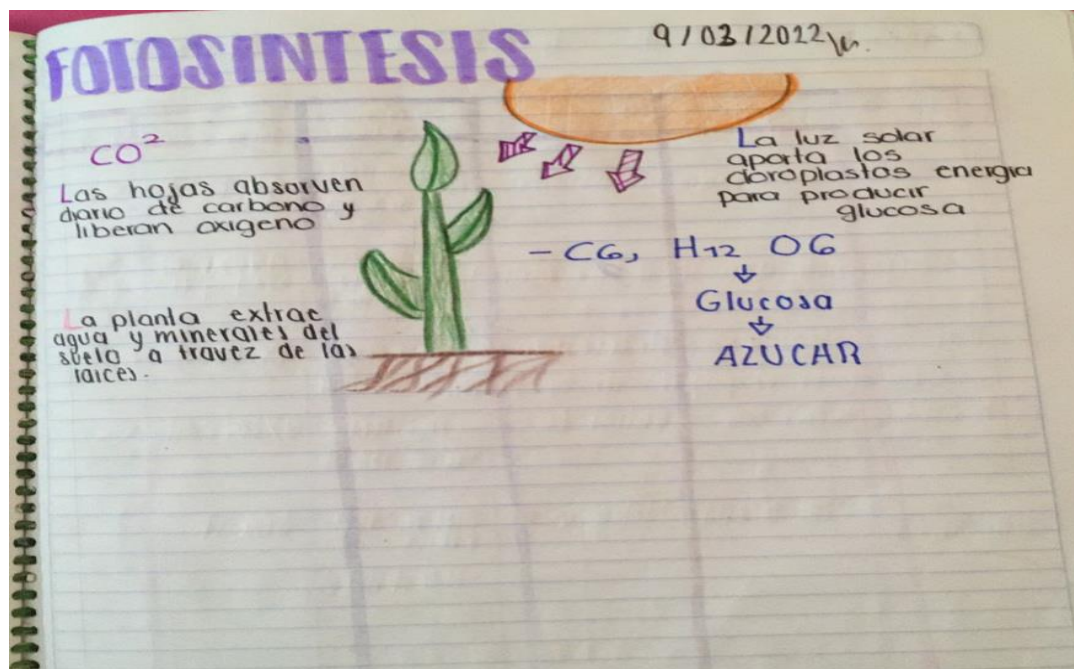 FOTOSINTESIS
9/03/2022
CO²
Las hojas absorven
diario de carbono y
liberan oxigeno
La planta extrae
agua y minerales del
suelo a travez de las
raices.
La luz solar
aporta los
cloroplastos energia
para producir
glucosa
- C6, H12 O6
Glucosa
AZUCAR